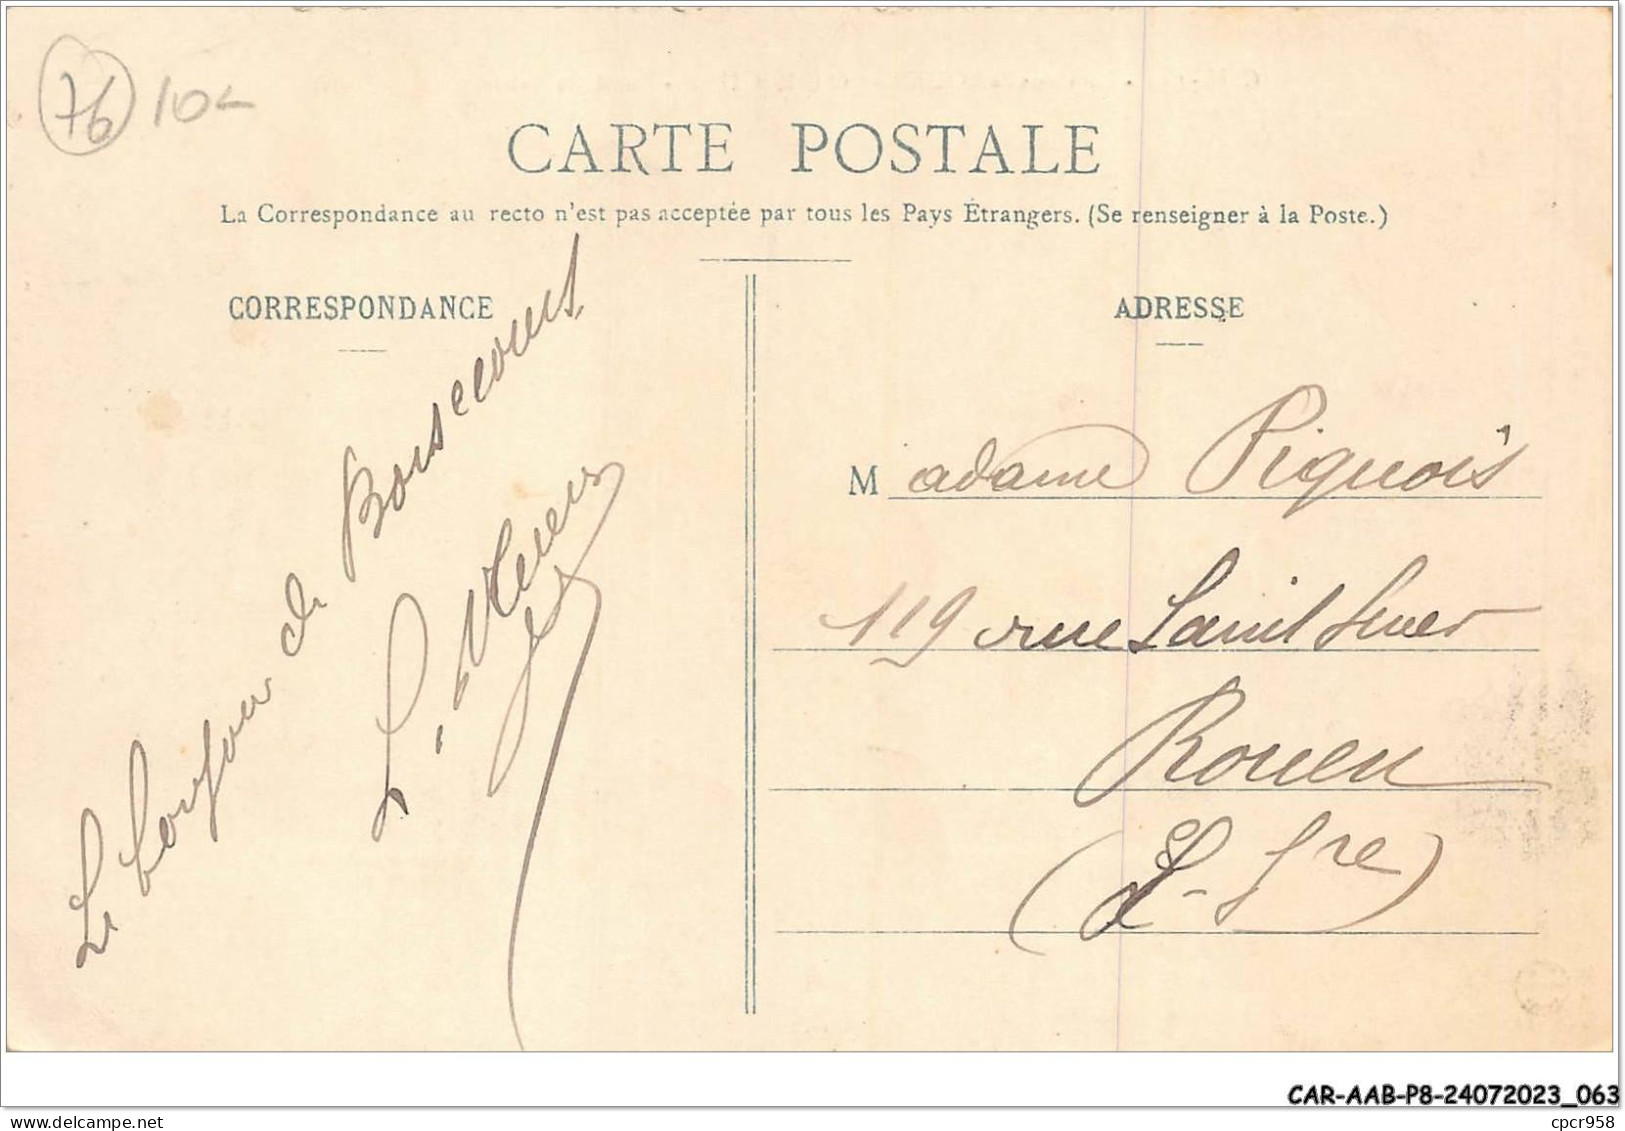 76 10-
CARTE POSTALE
La Correspondance au recto n'est pas acceptée par tous les Pays Étrangers. (Se renseigner à la Poste.)
CORRESPONDANCE
Le bonjour de Bonsecours
L.
ADRESSE
Madame Piquois
119 rue Saint Sever
Rouen
(S-Sre)
CAR-AAB-P8-24072023_063
cpcr958